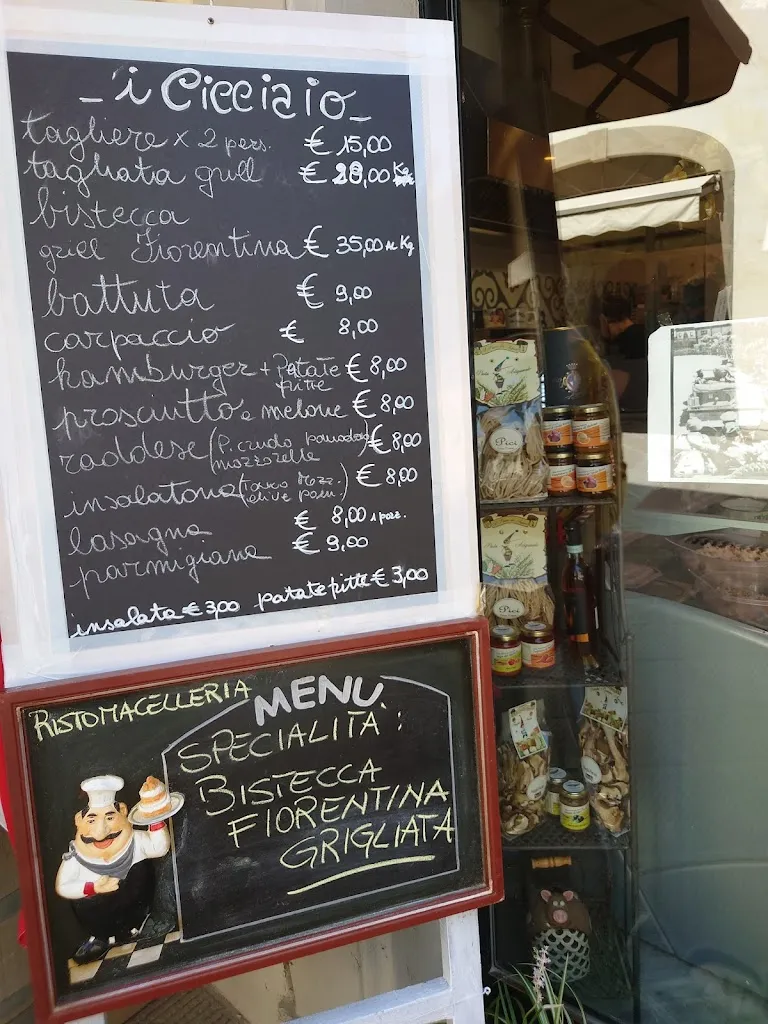 - i Cicciaio -
tagliere x 2 pers. € 15,00
tagliata grill € 28,00 Kg
bistecca
griel Fiorentina € 35,00 al Kg
battuta € 9,00
carpaccio € 8,00
hamburger + Patate fritte € 8,00
prosciutto e melone € 8,00
raddese (P. crudo pomodoro
mozzarella € 8,00
insalatona (Tonno Mozz.
olive pom.) € 8,00
lasagna € 8,00 1 porz.
parmigiana € 9,00
insalata € 3,00 patate fritte € 3,00
RISTOMACELLERIA
MENU
SPECIALITÀ:
BISTECCA
FIORENTINA
GRIGLIATA
Pici
Pici